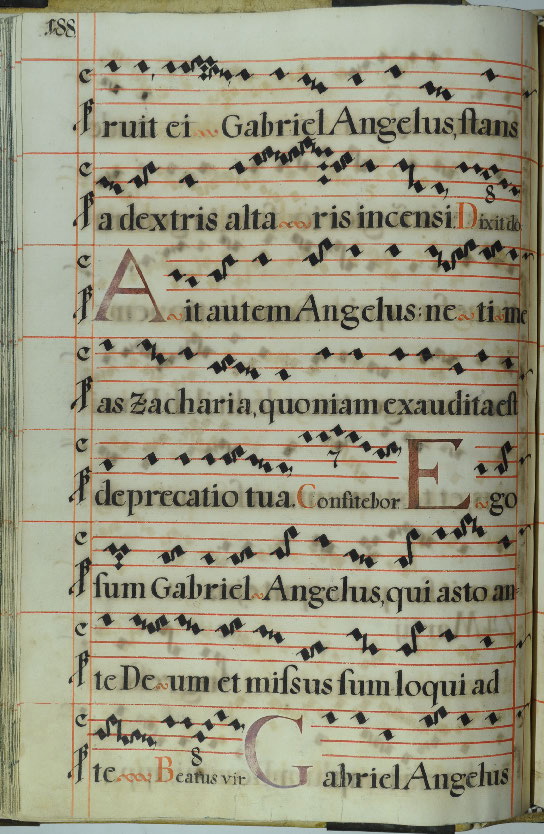 188
ruit ei Gabriel Angelus, ſtans
a dextris alta ris incensi. Dixit do
8
A it autem Angelus: ne ti me
as Zacharia, quoniam exaudita eſt
deprecatio tua. Confitebor E go
7
ſum Gabriel Angelus, qui asto an-
te De um et miſsus ſum loqui ad
te Beatus vir G abriel Angelus
8